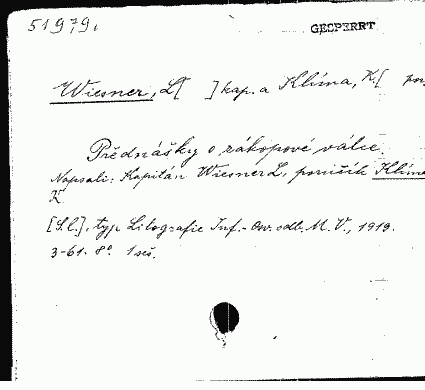 51979.
GESPERRT
Wiesner, L[ ] kap. a Klíma, K.[ por
Přednášky o zákopové válce.
Napsali: Kapitán Wiesner L., poručík Klíma
K.
[S.l.], typ. Litografie Inf.- ov. odb. M. V., 1919.
3-61. 8° 1 seš.